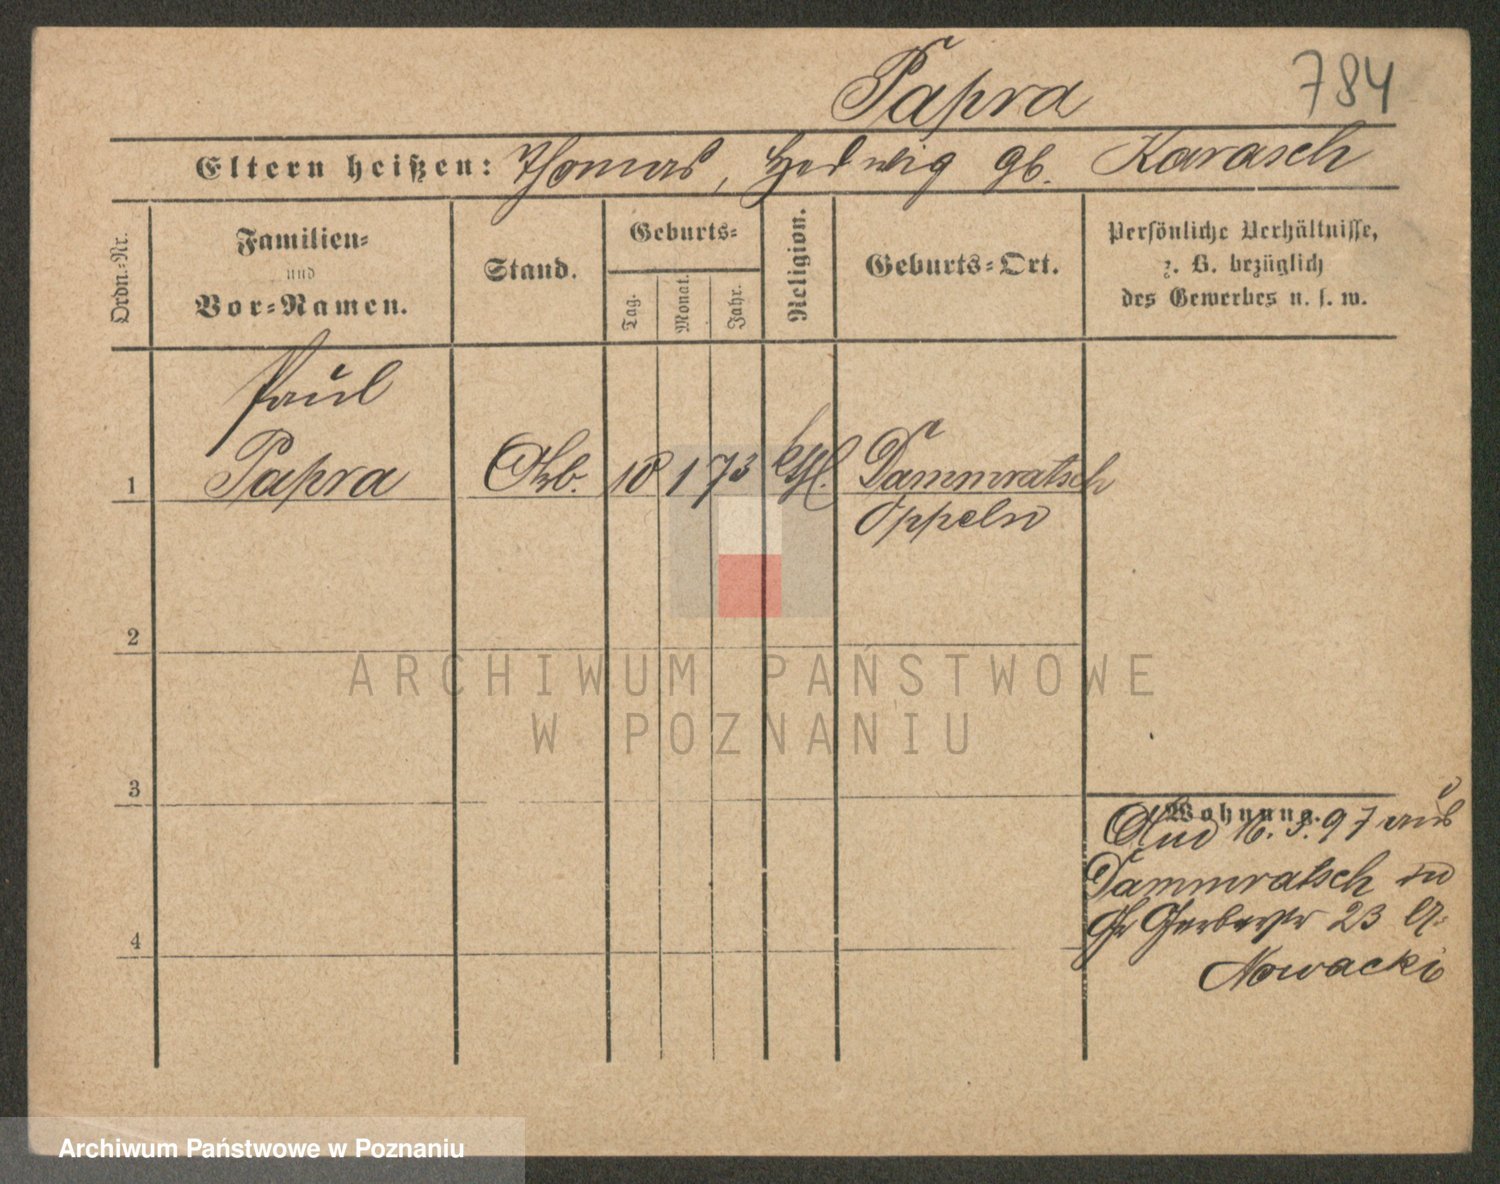 Papra 784
Eltern heißen: Thomas, Hedwig gb. Karasch
Ordn.-Nr.
Familien-
und
Vor-Namen.
Stand.
Geburts-
Tag.
Monat.
Jahr.
Religion.
Geburts-Ort.
Persönliche Verhältnisse,
z. B. bezüglich
des Gewerbes u. s. w.
Paul
1 Papra 10 1 73 kthl. Dammratsch
Oppeln
2
3
4
Wohnung.
16. 3. 97 aus
Dammratsch
Gr Gerberstr 23
Nowacki
ARCHIWUM PAŃSTWOWE
W POZNANIU
Archiwum Państwowe w Poznaniu